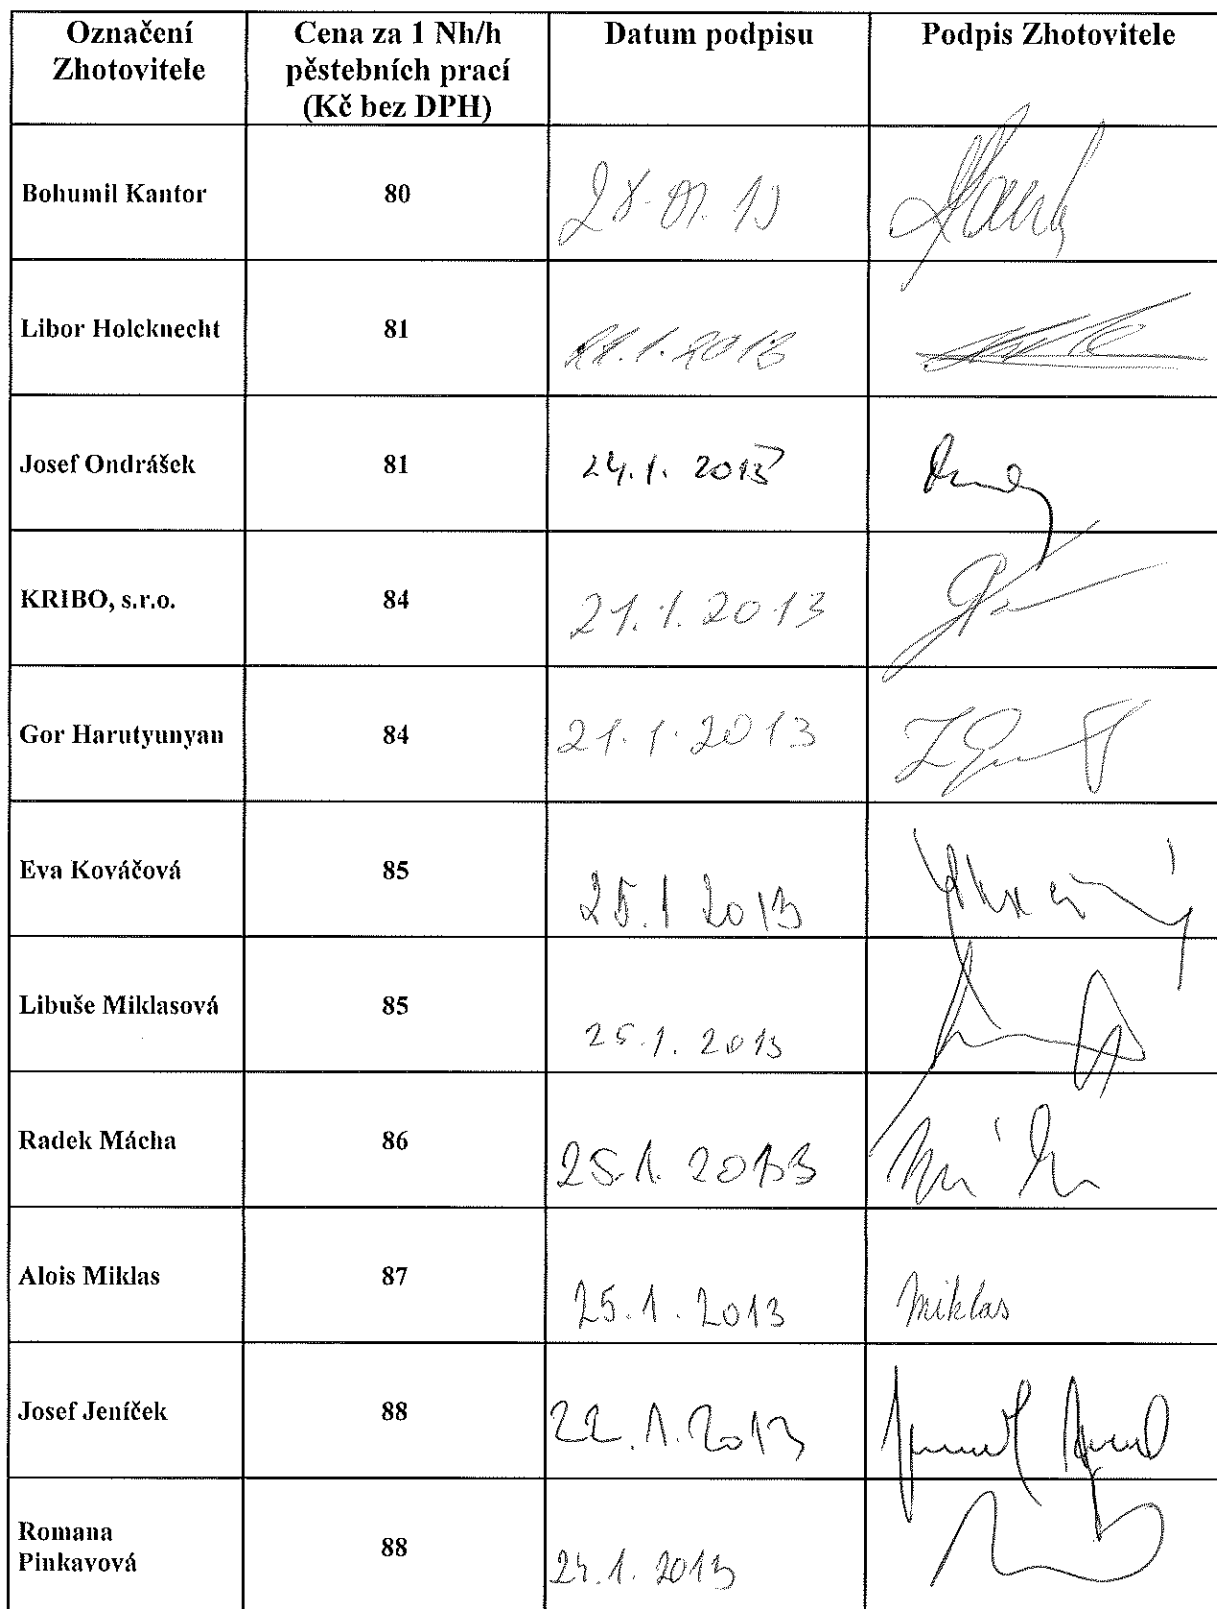 Označení Zhotovitele
Cena za 1 Nh/h pěstebních prací (Kč bez DPH)
Datum podpisu
Podpis Zhotovitele
Bohumil Kantor 80 28.01.13
Libor Holcknecht 81
Josef Ondrášek 81 24.1. 2013
KRIBO, s.r.o. 84 21.1.2013
Gor Harutyunyan 84 21.1.2013
Eva Kováčová 85 25.1 2013
Libuše Miklasová 85 25.1.2013
Radek Mácha 86 25.1.2013
Alois Miklas 87 25.1.2013 Miklas
Josef Jeníček 88 22.1.2013
Romana Pinkavová 88 24.1.2013